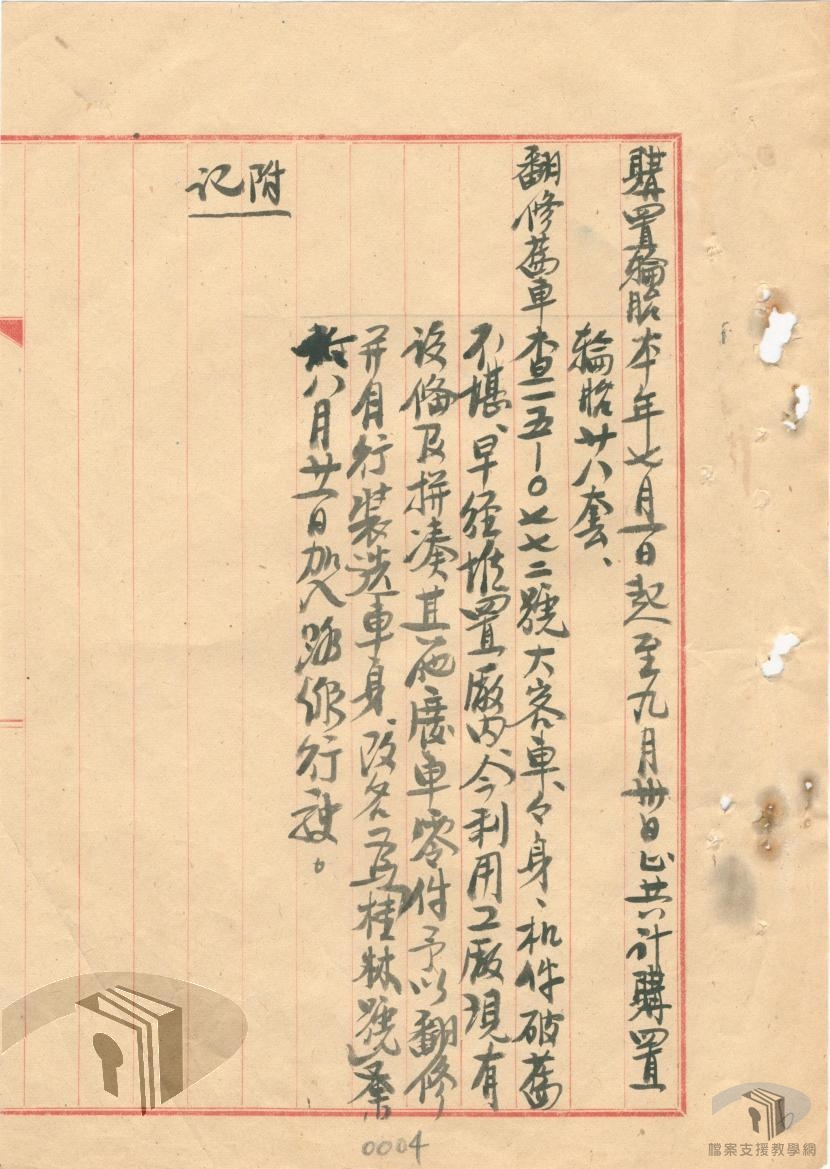 購置輪胎本年七月一日起至九月卅日止共計購置
輪胎廿八套、
翻修舊車查一五-0七七二號大客車、々身、机件破舊
不堪、早經堆置廠內、今利用工廠現有
設備及拼凑其他廢車零件予以翻修
并自行裝造車身、改名為桂林號、業
於八月廿一日加入路線行駛。
附記
0004
檔案支援教學網